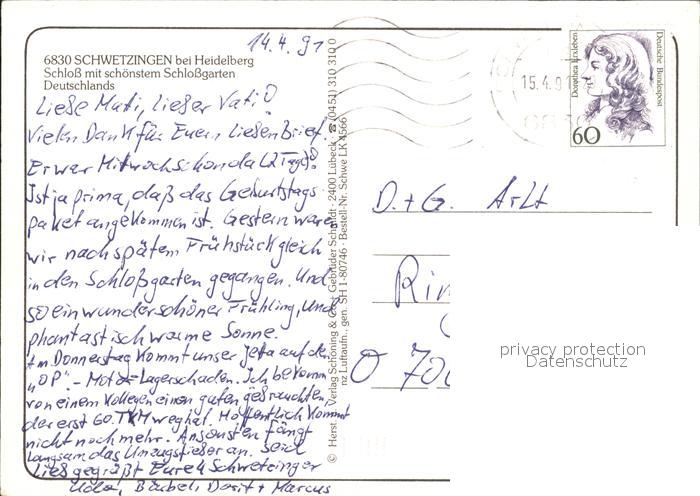 14.4.91
6830 SCHWETZINGEN bei Heidelberg
Schloß mit schönstem Schloßgarten
Deutschlands
Liebe Muti, lieber Vati!
Vielen Dank für Euern lieben Brief.
Er war Mittwoch schon da (2 Tage)!
Ist ja prima, daß das Geburtstags-
paket angekommen ist. Gestern waren
wir nach spätem Frühstück gleich
in den Schloßgarten gegangen. Und
so ein wunderschöner Frühling, und
phantastisch warme Sonne.
Am Donnerstag kommt unser Jetta auf den
"OP". - Motor-Lagerschaden. Ich bekomm
von einem Kollegen einen guten gebrauchten
der erst 60. TKM weg hat. Hoffentlich kommt
nicht noch mehr. Ansonsten fängt
langsam das Umzugsfieber an. Seid
lieb gegrüßt Eure 4 Schwetzinger
Udo, Bärbel, Dorit + Marcus
© Herst. Verlag Schöning & Co + Gebrüder Schmidt · 2400 Lübeck · ☎ (0451) 310 310
nz Luftaufn., gen. SH 1-80746 · Bestell-Nr. Schwe LK 4566
15.4.91
Dorothea Erxleben
Deutsche Bundespost
60
D. + G. Arlt
Rin
O 700
privacy protection
Datenschutz